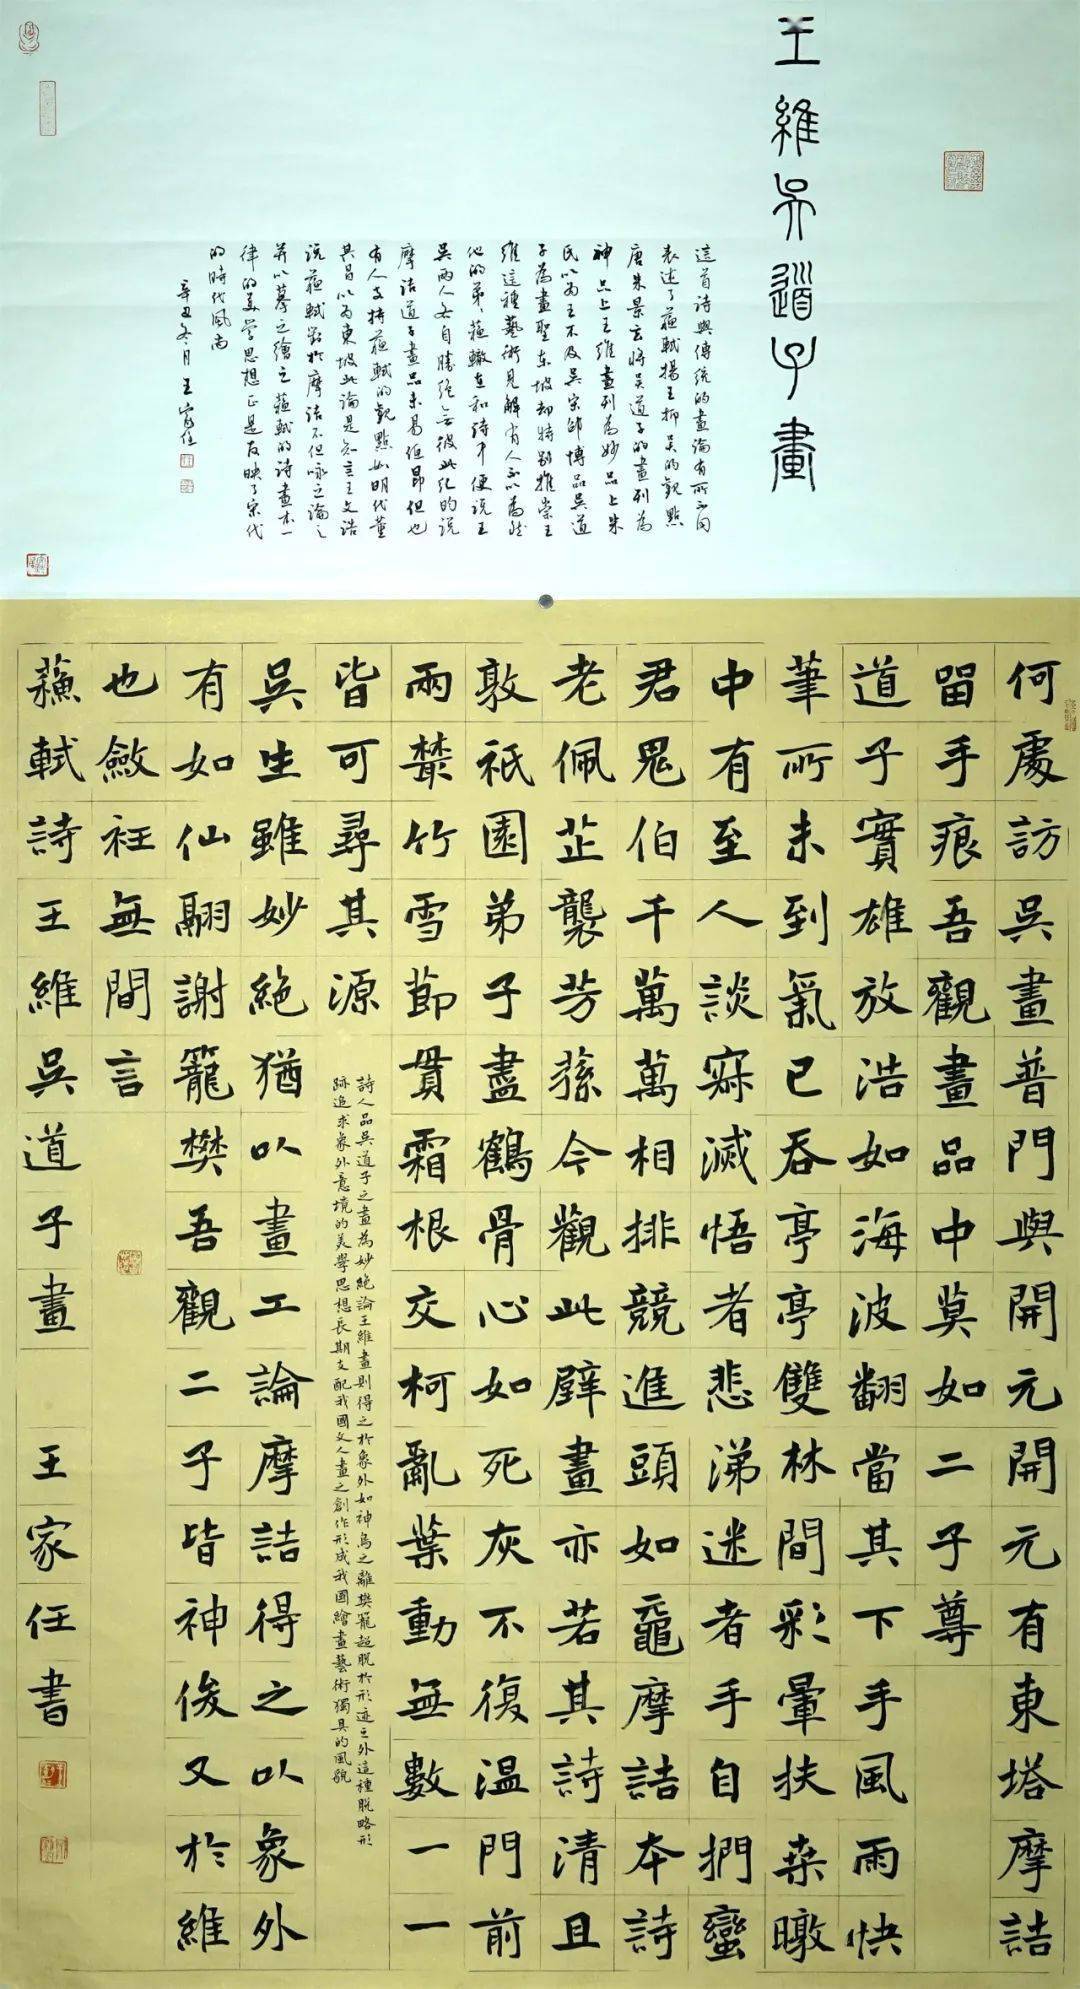 王維吳道子畫
這首詩與傳統的畫論有所不同
表述了蘇軾揚王抑吳的觀點
唐朱景玄將吳道子的畫列為
神品上王維畫列為妙品上朱
氏以為王不及吳宋邵博品吳道
子為畫聖東坡却特別推崇王
維這種藝術見解有人不以為然
他的弟、蘇轍在和詩中便說王
吳兩人各自勝絕無彼此他的說
摩詰道子畫品未易但也
有人支持蘇軾的觀點如明代董
其昌以為東坡此論是知言王文誥
說蘇軾對於摩詰不但咏之論之
并以摹之繪之蘇軾的詩畫本一
律的美學思想正是反映了宋代
的時代風尚
辛丑冬月王家任
何處訪吳畫普門與開元開元有東塔摩詰
留手痕吾觀畫品中莫如二子尊
道子實雄放浩如海波翻當其下手風雨快
筆所未到氣已吞亭亭雙林間彩暈扶桑暾
中有至人談寂滅悟者悲涕迷者手自捫蠻
君鬼伯千萬萬相排競進頭如黿摩詰本詩
老佩芷襲芳蓀今觀此壁畫亦若其詩清且
敦祇園弟子盡鶴骨心如死灰不復溫門前
兩叢竹雪節貫霜根交柯亂葉動無數一一
皆可尋其源
詩人品吳道子之畫為妙絕論王維畫則得之於象外如神鳥之離樊籠超脫於形迹之外這種脫略形
跡追求象外意境的美學思想長期支配我國文人畫之創作形成我國繪畫藝術獨具的風貌
吳生雖妙絕猶以畫工論摩詰得之以象外
有如仙翮謝籠樊吾觀二子皆神俊又於維
也斂衽無間言
蘇軾詩王維吳道子畫 王家任書